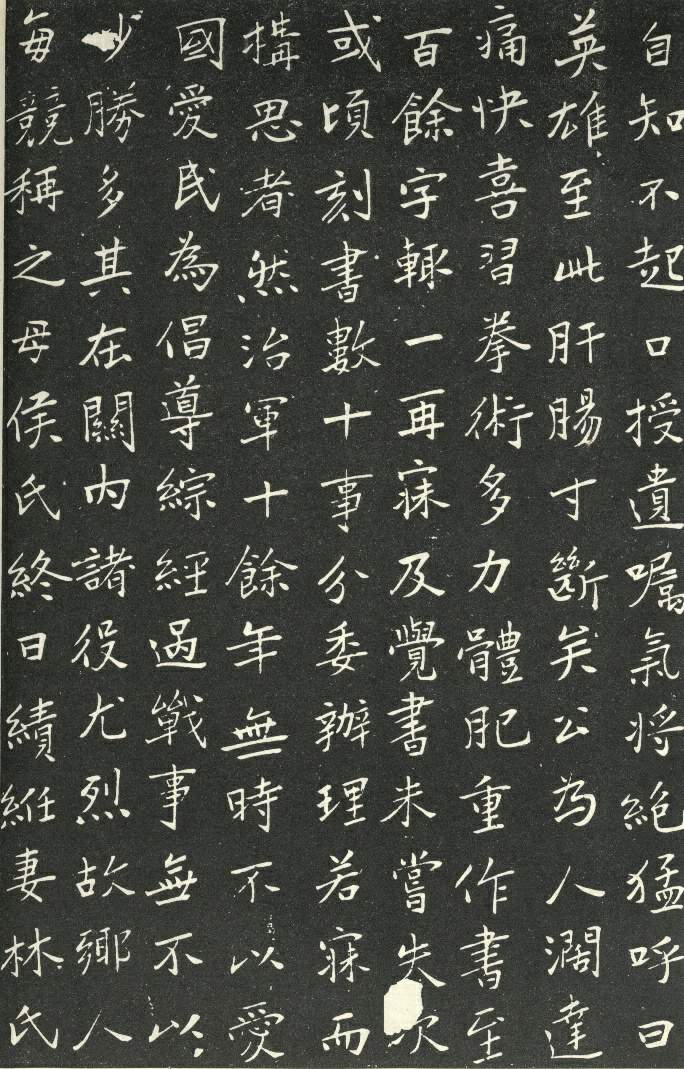 自知不起口授遺囑氣將絕猛呼曰
英雄至此肝腸寸斷矣公為人濶達
痛快喜習拳術多力體肥重作書至
百餘字輒一再寐及覺書未嘗失次
或頃刻書數十事分委辦理若寐而
構思者然治軍十餘年無時不以愛
國愛民為倡導綜經過戰事無不以
少勝多其在關內諸役尤烈故鄉人
每競稱之母侯氏終日績絍妻林氏